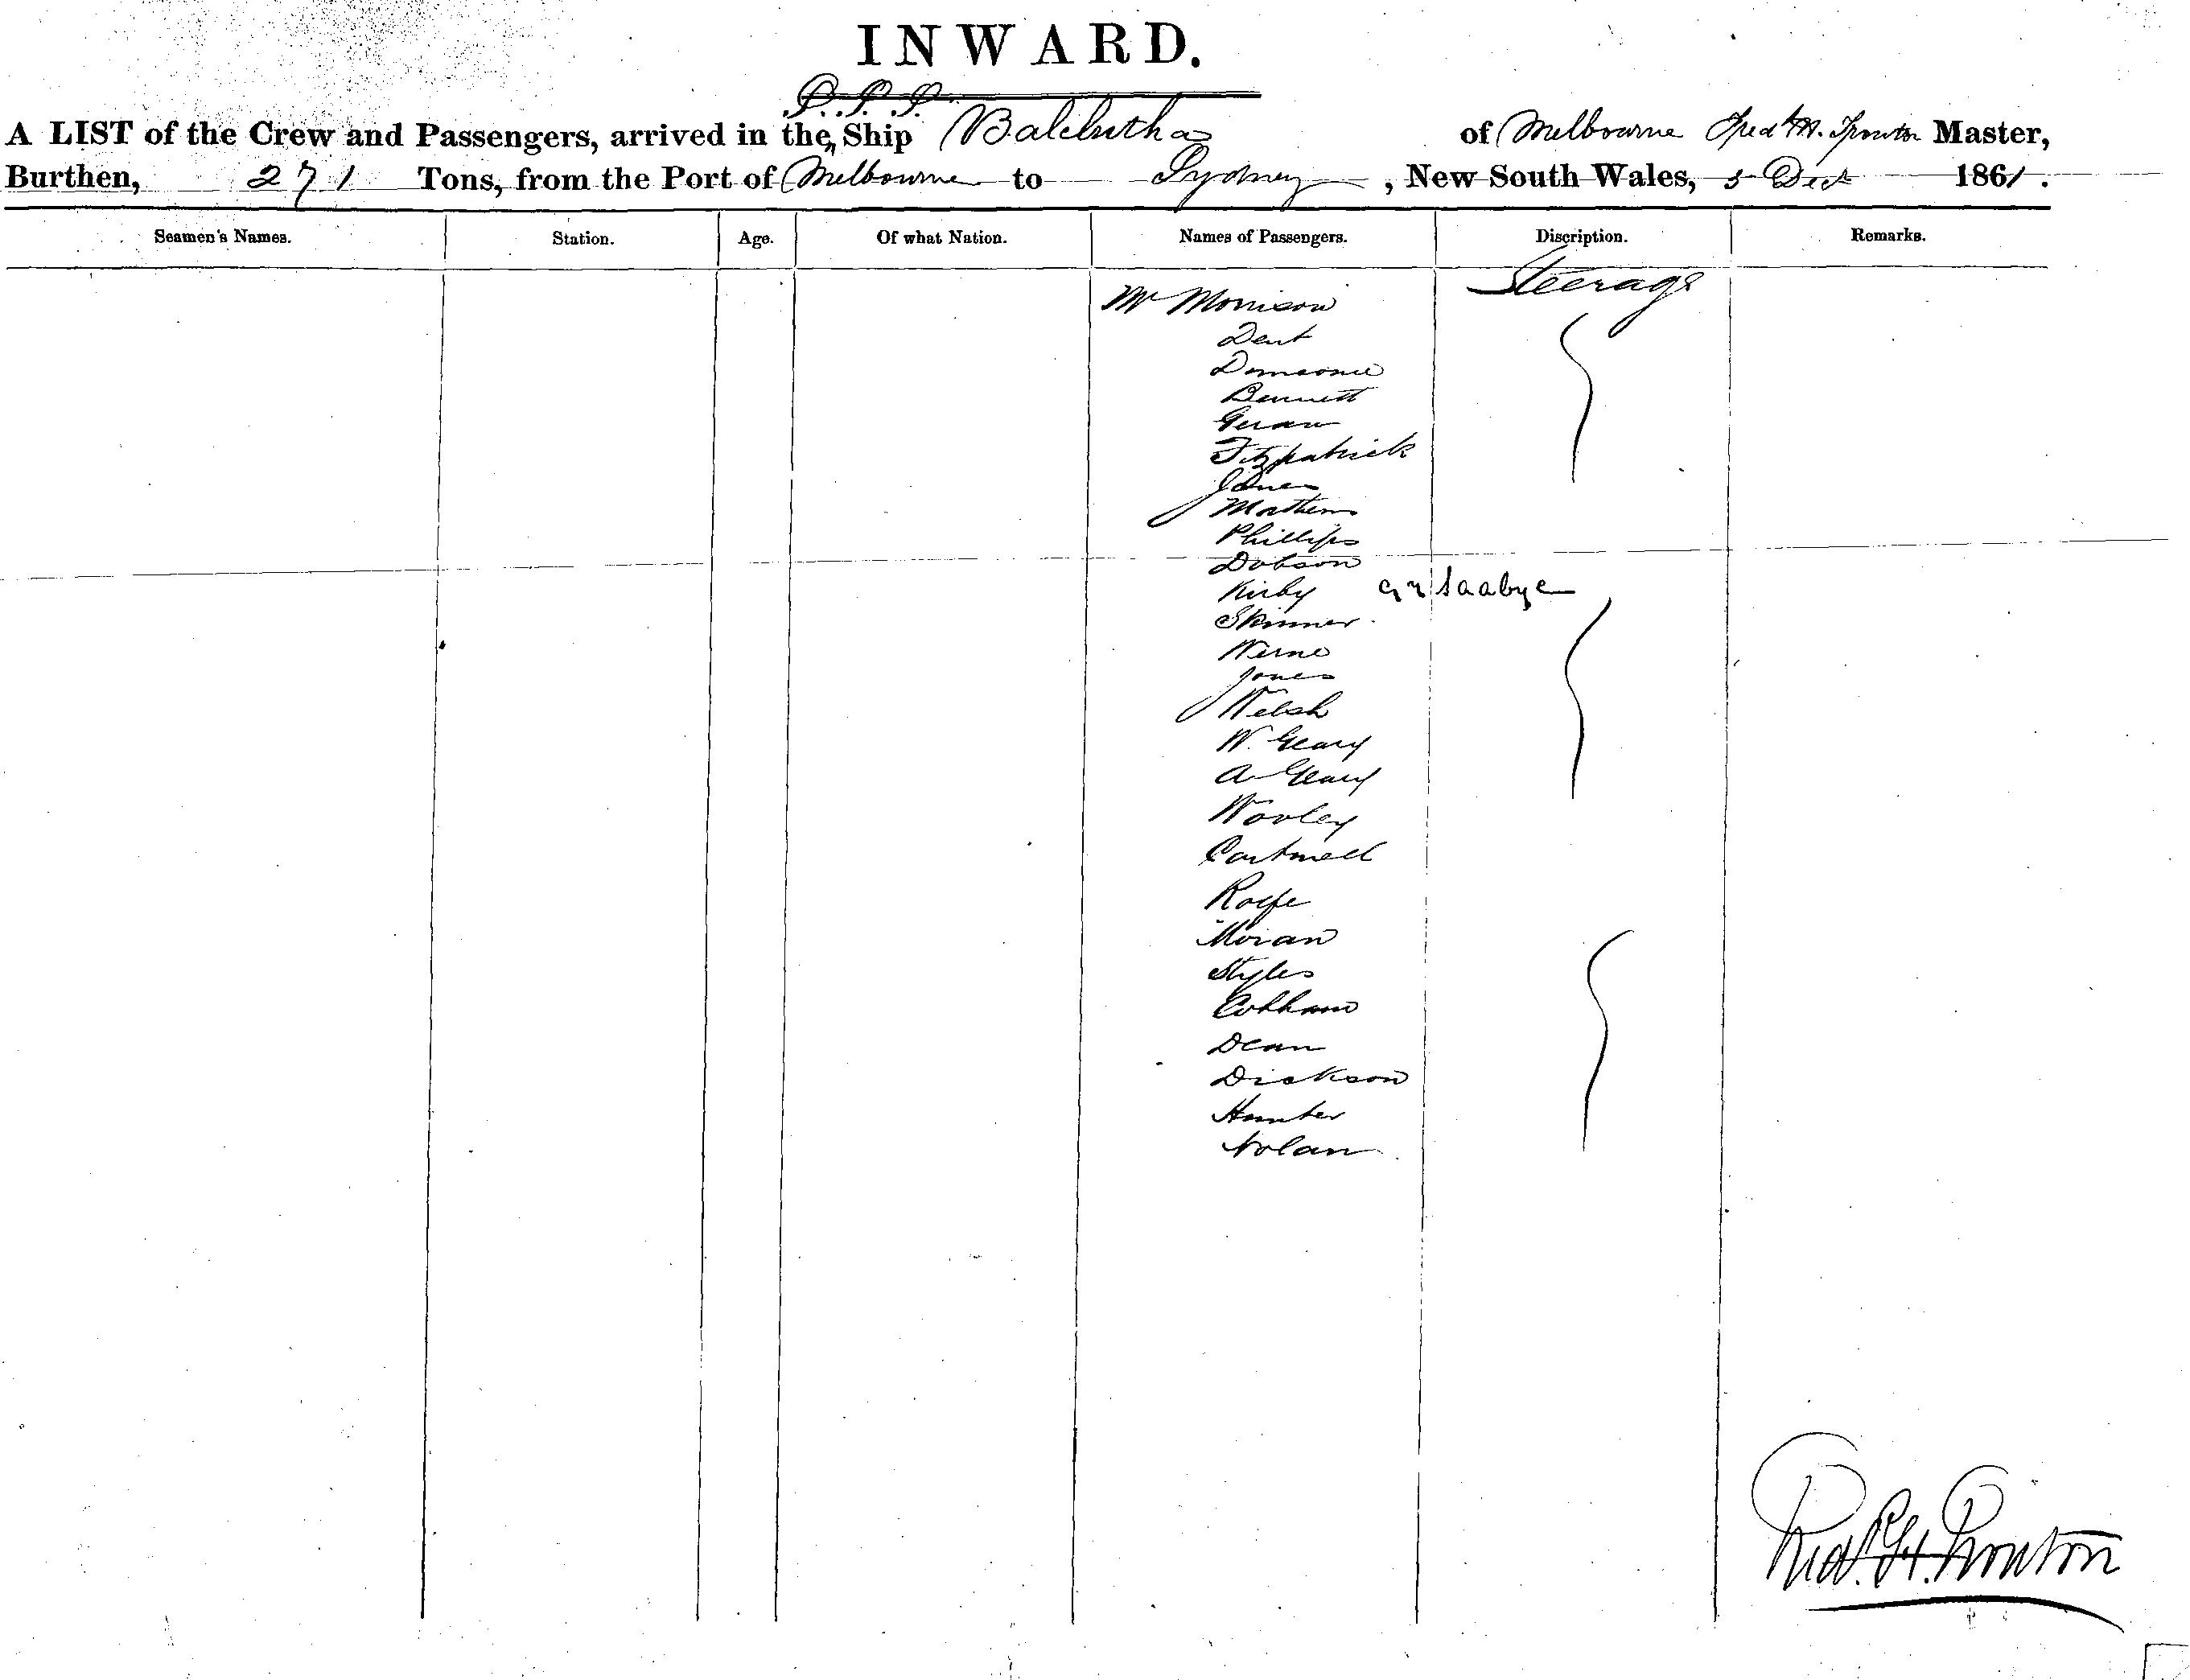 INWARD.
A LIST of the Crew and Passengers, arrived in the Ship Balclutha of Melbourne Fredk H. Trouton Master,
Burthen, 271 Tons, from the Port of Melbourne to Sydney, New South Wales, 5 Dec 1861.
Seamen's Names. Station. Age. Of what Nation. Names of Passengers. Discription. Remarks.
Steerage
Mr Morrison
Dent
Bennett
Fitzpatrick
Jones
Phillips
Dobson
Kirby
Saabye
Skinner
Jones
Welsh
W. Geary
A Geary
Worley
Cartmell
Rolfe
Moran
Styles
Cobham
Dean
Dickson
Hunter
Nolan
Fredk. H. Trouton